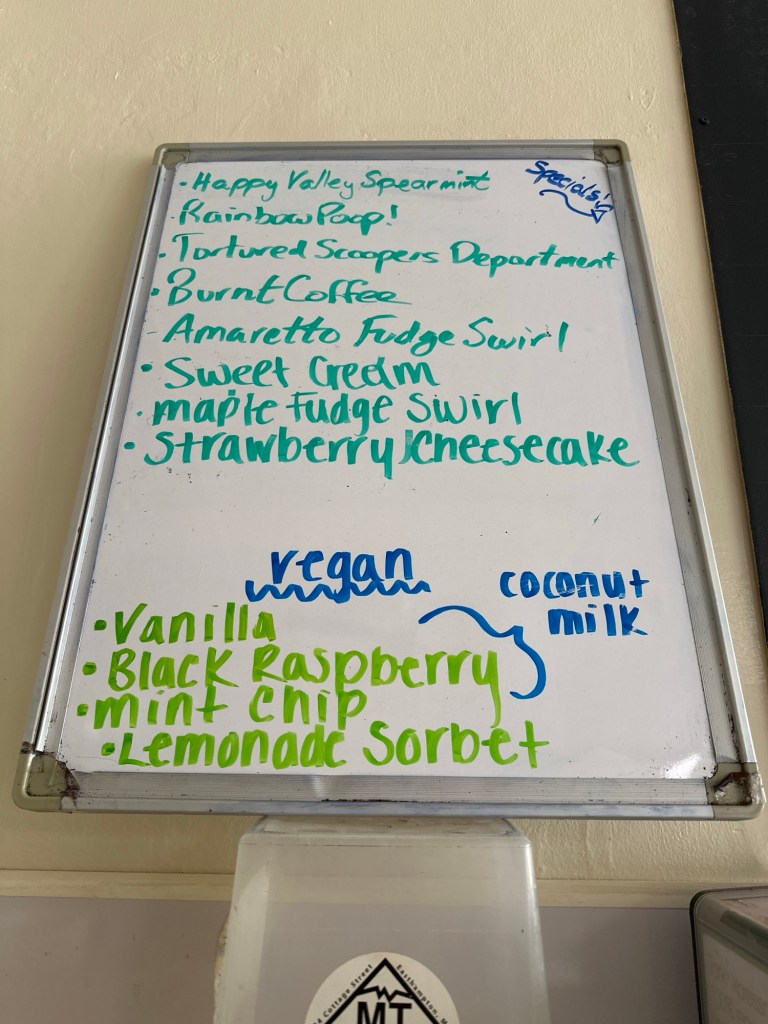 Specials!
• Happy Valley Spearmint
• Rainbow Poop!
• Tortured Scoopers Department
• Burnt Coffee
- Amaretto Fudge Swirl
• Sweet Cream
• maple Fudge Swirl
• Strawberry Cheesecake
vegan
coconut
milk
• Vanilla
• Black Raspberry
• mint chip
• Lemonade Sorbet
Cottage Street
Easthampton, M
MT